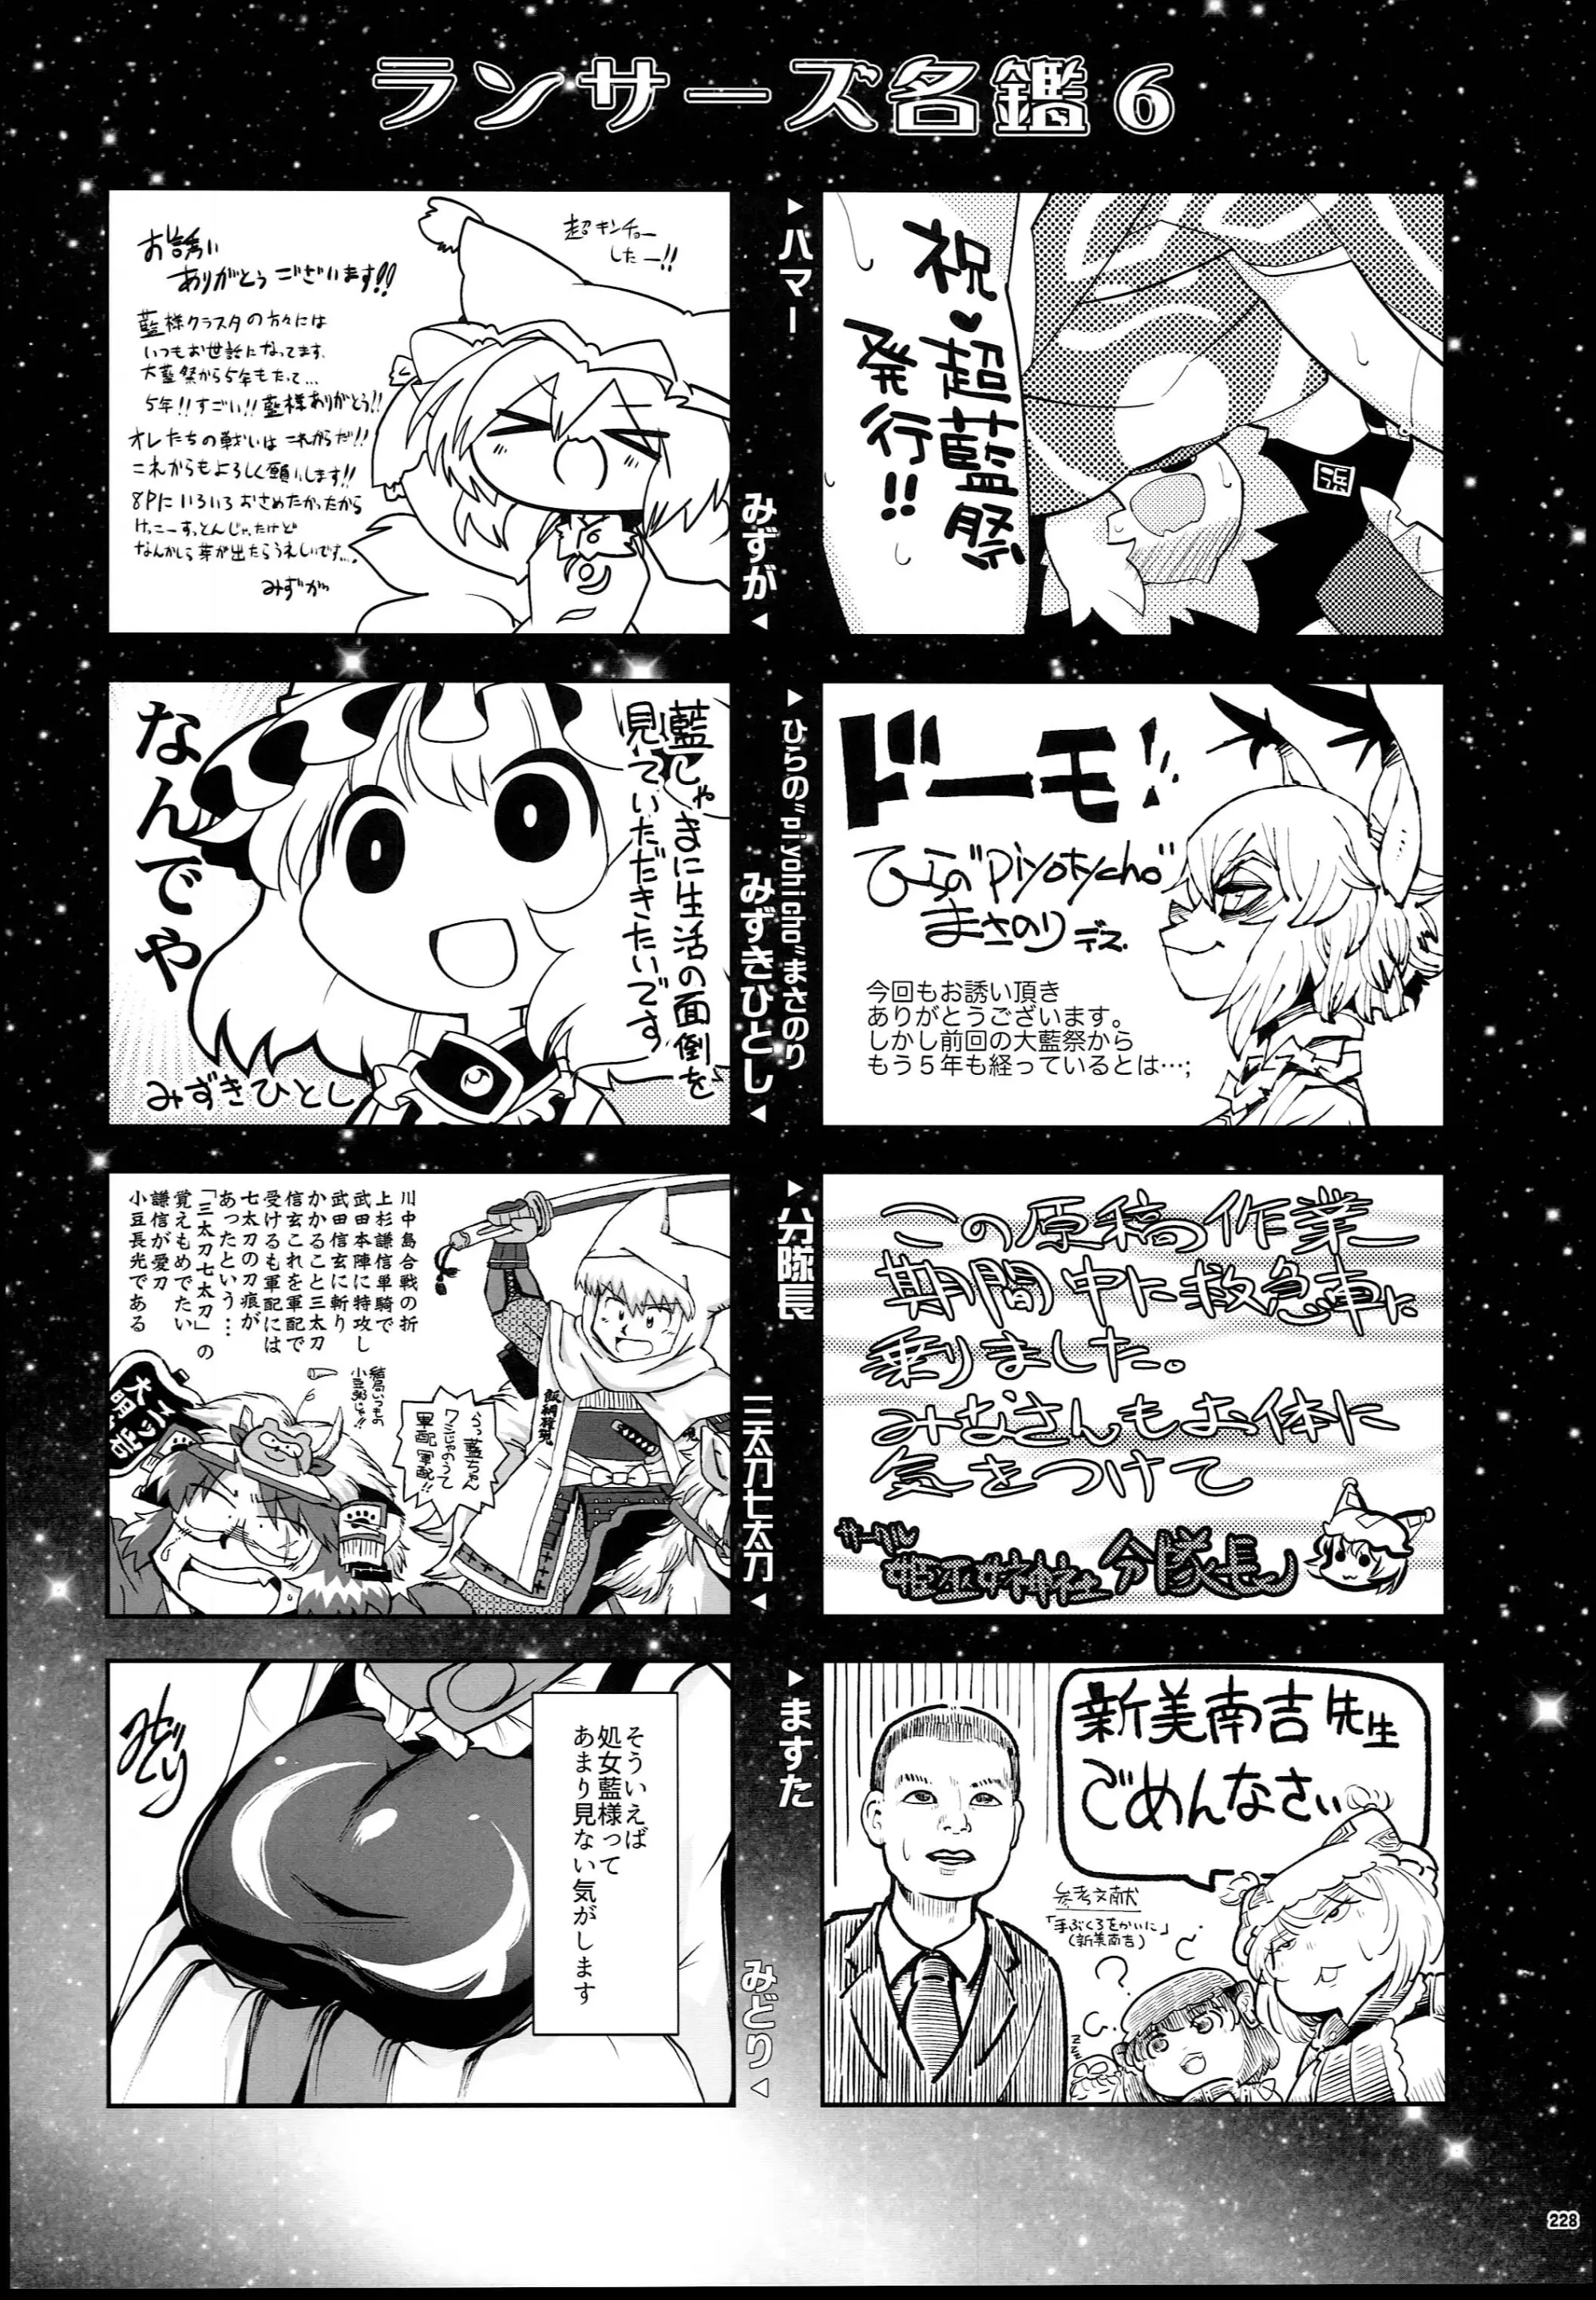 ランサーズ名鑑6
▶ハマー
祝♥超藍祭
発行!!
浜
みずが◀
超キンチョー
したー!!
お誘い
ありがとうございます!!
藍様クラスタの方々には
いつもお世話になってます。
大藍祭から5年もたって…
5年!!すごい!!藍様ありがとう!!
オレたちの戦いはこれからだ!!
これからもよろしく願いします!!
8Pにいろいろおさめたかったから
けっこーすっとんじゃたけど
なんかしら芽が出たらうれしいです…。
みずが
▶ひらの"piyohicho"まさのり
ドーモ!
ひらの"piyotycho"
まさのりデス
今回もお誘い頂き
ありがとうございます。
しかし前回の大藍祭から
もう5年も経っているとは…;
みずきひとし◀
藍しゃまに生活の面倒を
見ていただきたいです
なんでや
みずきひとし
▶分隊長
この原稿作業
期間中に救急車に
乗りました。
みなさんもお体に
気をつけて
サークル
分隊長
三太刀七太刀◀
川中島合戦の折
上杉謙信単騎で
武田本陣に特攻し
武田信玄に斬り
かかること三太刀
信玄これを軍配で
受けるも軍配には
七太刀の刀痕が
あったという…
「三太刀七太刀」の
覚えもめでたい
謙信が愛刀
小豆長光である
結局いつもの
小豆粥じゃ!!
らっ藍ちゃん
ワニじゃのうて
軍配軍配!!
飯綱権現
▶ますた
新美南吉先生
ごめんなさい
参考文献
「手ぶくろをかいに」
(新美南吉)
みどり◀
そういえば
処女藍様って
あまり見ない気がします
みどり
228